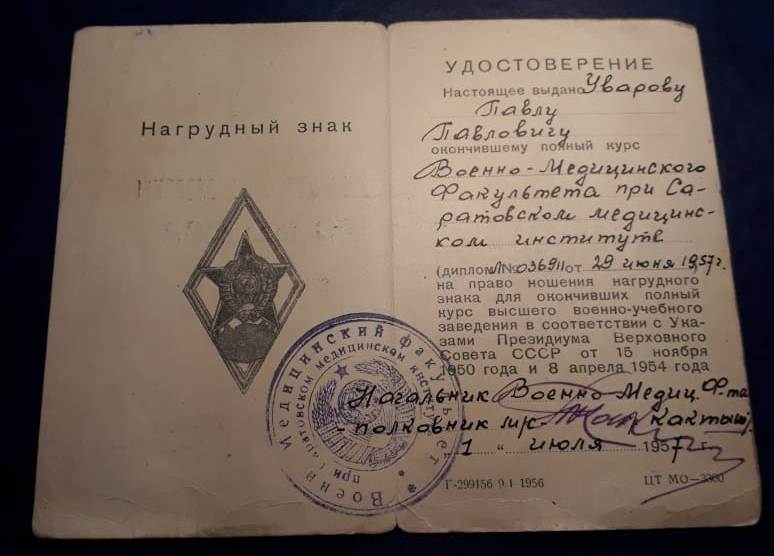 Нагрудный знак
УДОСТОВЕРЕНИЕ
Настоящее выдано Уварову
Павлу
Павловичу
окончившему полный курс
Военно-Медицинского
Факультета при Са-
ратовском медицинс-
ком институте
(диплом Л №036911 от 29 июня 1957 г.
на право ношения нагрудного
знака для окончивших полный
курс высшего военно-учебного
заведения в соответствии с Ука-
зами Президиума Верховного
Совета СССР от 15 ноября
1950 года и 8 апреля 1954 года
Начальник Военно-Медиц. Ф-та
-полковник м/с Кактыш
"1" июля 1957 г.
Г-299156 9.1 1956
ЦТ МО—3360
Военн Медицинский факультет
при Саратовском медицинском институте